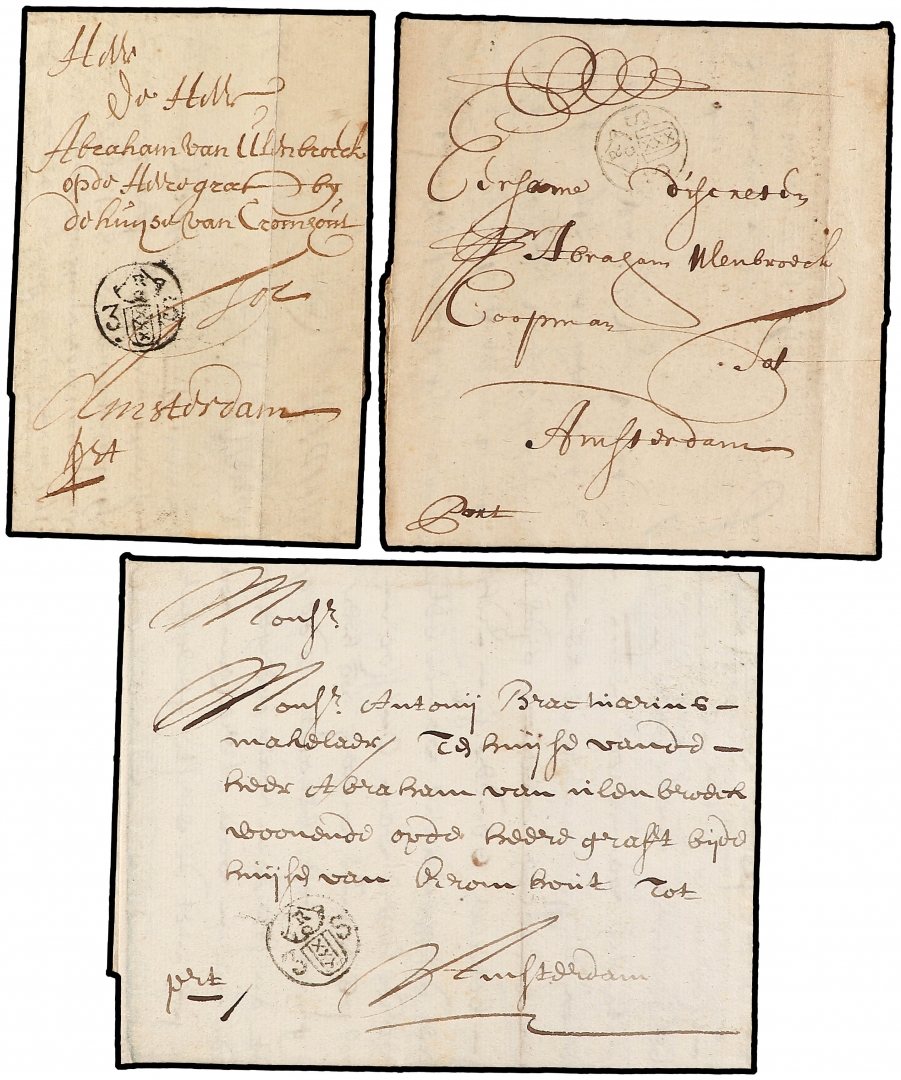 Mhr
De Hhr
Abraham van Ulenbroeck
op de Heregraf by
de huijse van Cromhout
Tot
3 S
XXX
Amsterdam
prt
S
XXX
Eersame discreten
Abraham Ulenbroeck
Coopman
Tot
Amsterdam
Port
Monsr.
Monsr. Antonij
makelaer Te huijse vande
heer Abraham van ulenbroeck
woonende opde heere graft bijde
huijse van Kromhout Tot
3 S
XXX
Amsterdam
prt